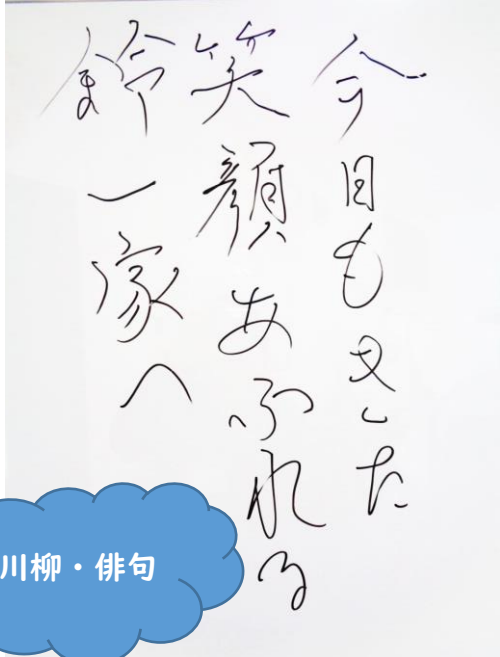 今日もきた
笑顔あふれる
鈴一家へ
川柳・俳句